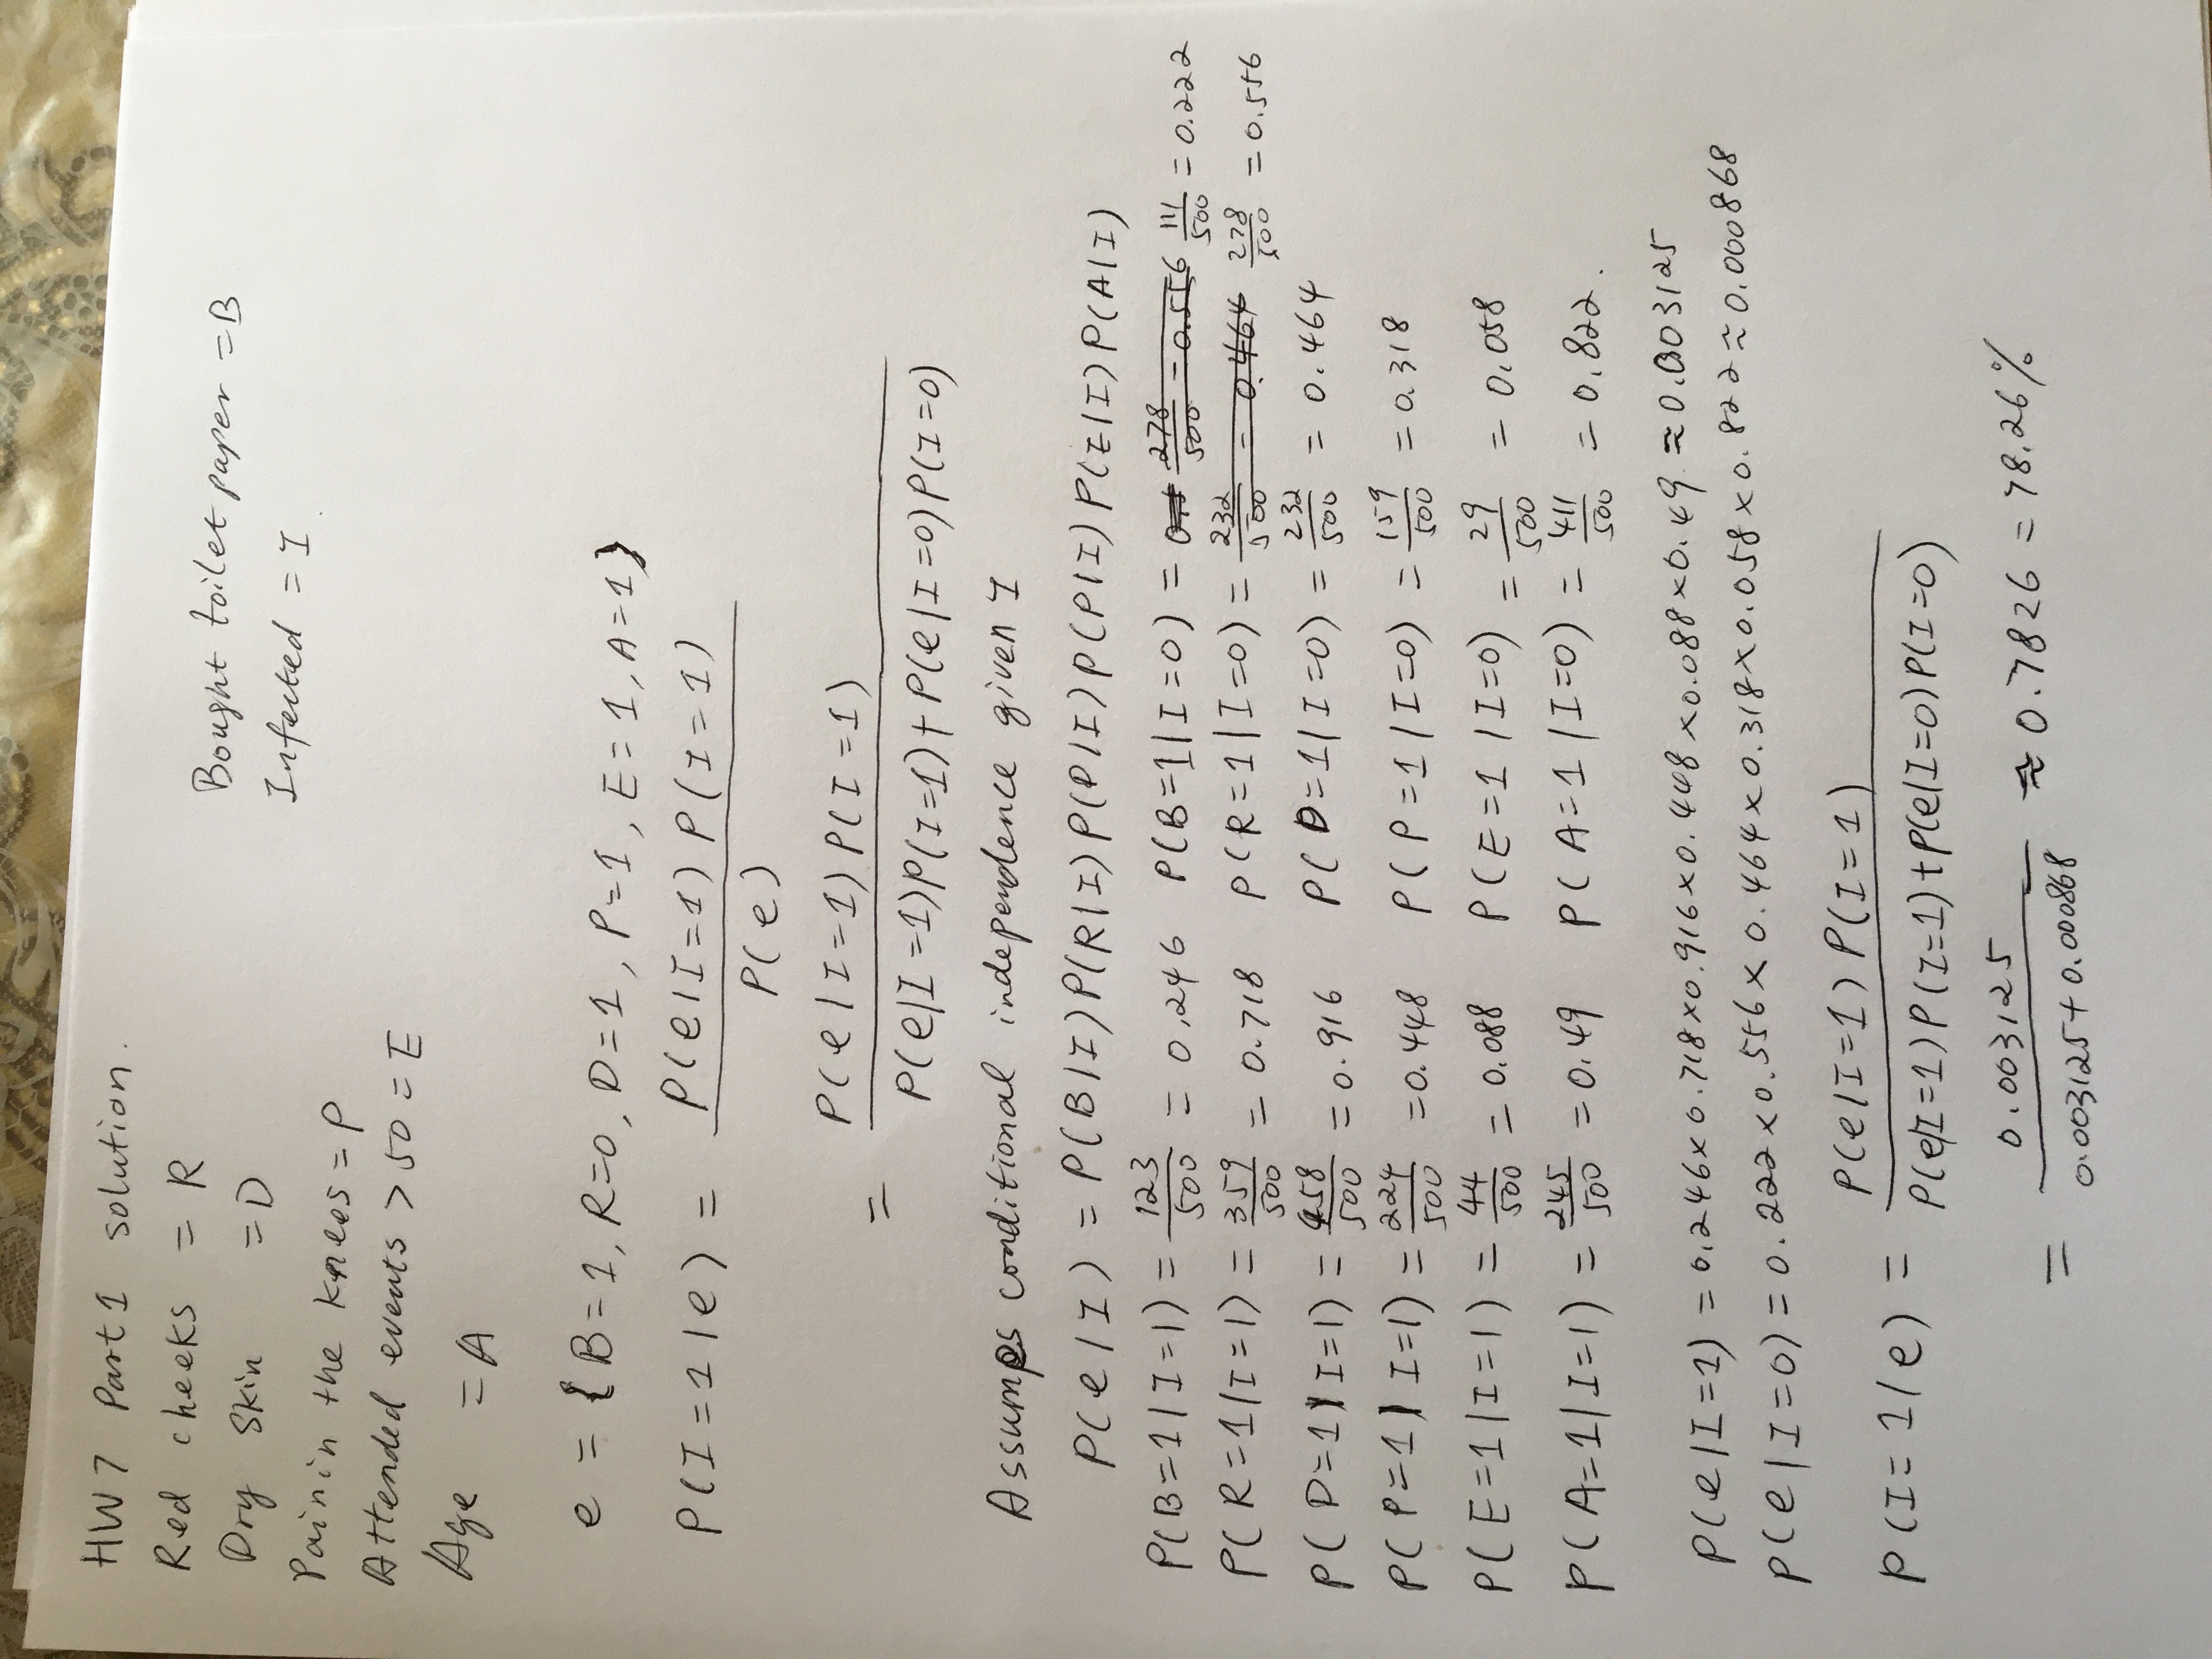 HW7 Part1 solution.
Red cheeks = R
Dry Skin = D
Pain in the knees = P
Attended events > 50 = E
Age = A
Bought toilet paper = B
Infected = I
e = {B=1, R=0, D=1, P=1, E=1, A=1}
P(I=1|e) = P(e|I=1) P(I=1) / P(e)
= P(e|I=1) P(I=1) / P(e|I=1)P(I=1) + P(e|I=0)P(I=0)
Assumes conditional independence given I
P(e|I) = P(B|I) P(R|I) P(D|I) P(P|I) P(E|I) P(A|I)
P(B=1|I=1) = 123/500 = 0.246 P(B=1|I=0) = 278/500 = 0.556 111/500 = 0.222
P(R=1|I=1) = 359/500 = 0.718 P(R=1|I=0) = 232/500 = 0.464 278/500 = 0.556
P(D=1|I=1) = 458/500 = 0.916 P(D=1|I=0) = 232/500 = 0.464
P(P=1|I=1) = 224/500 = 0.448 P(P=1|I=0) = 159/500 = 0.318
P(E=1|I=1) = 44/500 = 0.088 P(E=1|I=0) = 29/500 = 0.058
P(A=1|I=1) = 245/500 = 0.49 P(A=1|I=0) = 411/500 = 0.822.
P(e|I=1) = 0.246×0.718×0.916×0.448×0.088×0.49 ≈ 0.003125
P(e|I=0) = 0.222×0.556×0.464×0.318×0.058×0.822 ≈ 0.000868
P(I=1|e) = P(e|I=1) P(I=1) / P(e|I=1)P(I=1) + P(e|I=0)P(I=0)
= 0.003125 / 0.003125 + 0.000868 ≈ 0.7826 = 78.26%